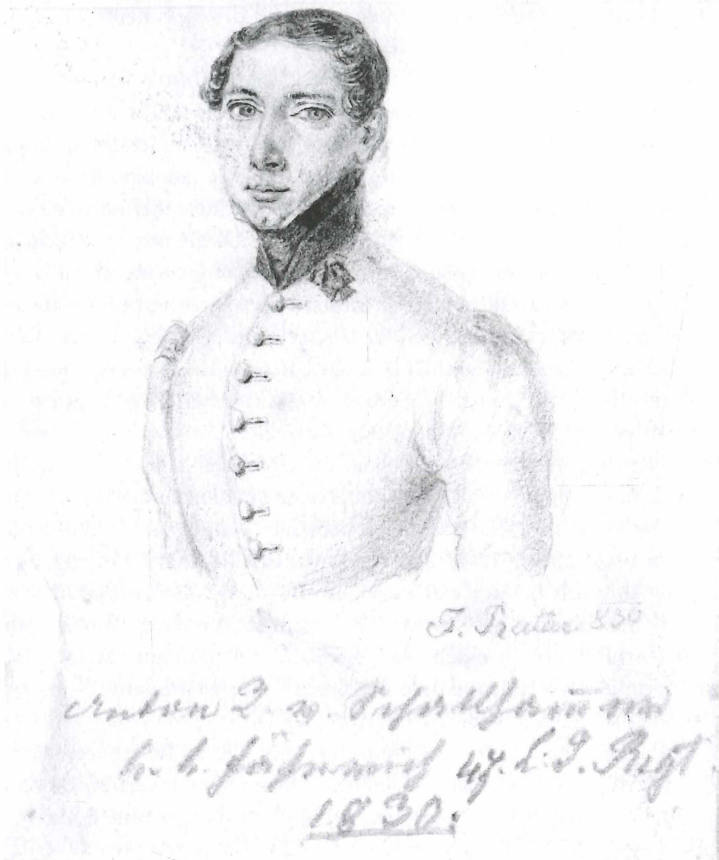 F. 830
Anton R. v Schallham̄er
k. k. Fähnrich 47. L. I. Regt
1830.